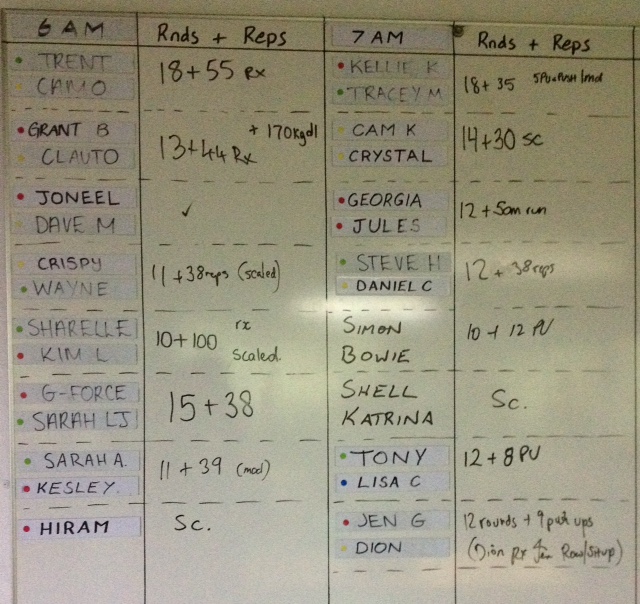 6 AM Rnds + Reps
TRENT
CAMO
18+55 Rx
GRANT B
CLAUTO
+ 170kg dl
13+44 Rx
JONEEL
DAVE M
✓
CRISPY
WAYNE
11+38reps (scaled)
SHARELLE
KIM L
10+100 rx
scaled.
G-FORCE
SARAH LJ
15+38
SARAH A.
KESLEY.
11+39 (mod)
HIRAM
Sc.
7 AM Rnds + Reps
KELLIE K
TRACEY M
18+35
CAM K
CRYSTAL
14+30 SC
GEORGIA
JULES
12+50m run
STEVE H
DANIEL C
12+38reps
SIMON
BOWIE
10+12 PU
SHELL
KATRINA
Sc.
TONY
LISA C
12+8 PU
JEN G
DION
12 rounds + 9 push ups
(Dion Rx Jen Row/Situp)